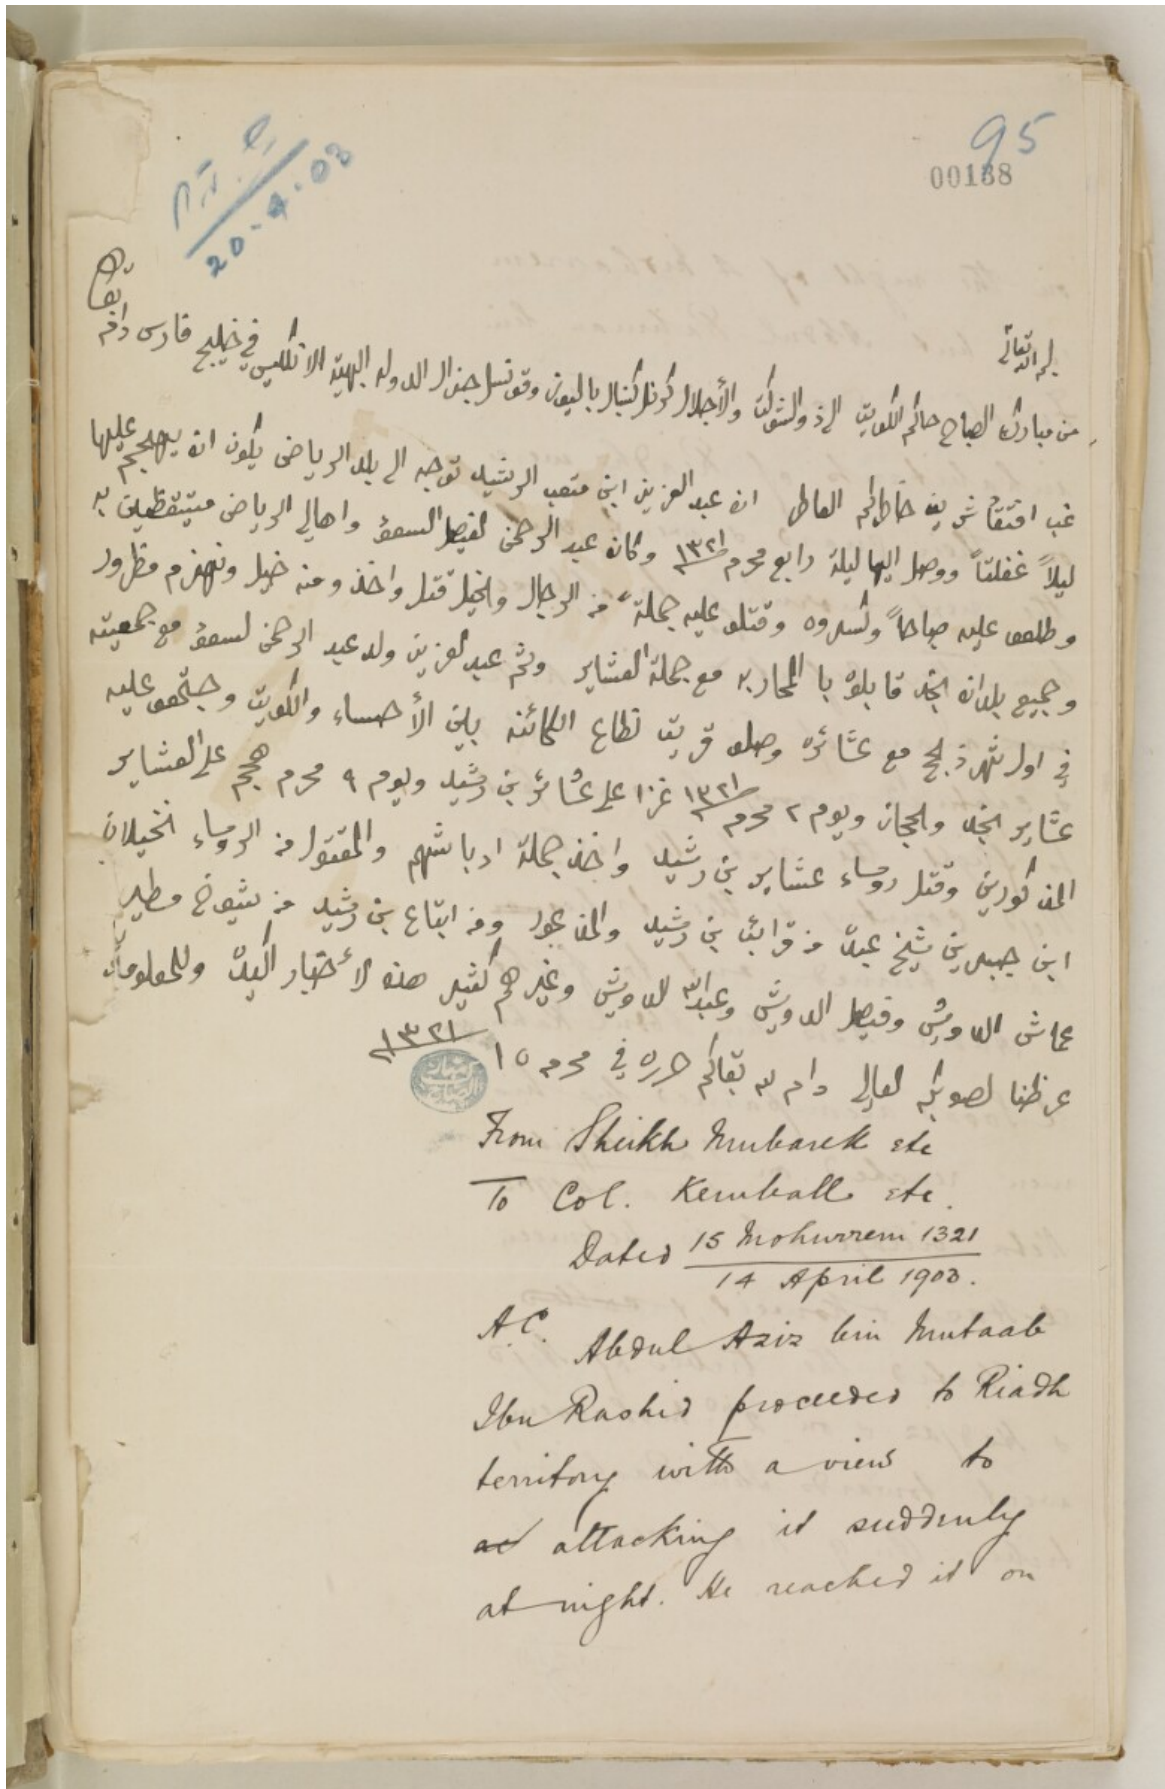 95
00138
20.4.03
بسم الله تعالى
من مبارك الصباح حاكم الكويت الى ذو الشوكت والأجلال كرنل كنبال باليوز وقونسل جنرال الدوله البهية الانكليس في خليج فارس دام بقاه
غب افتقاد شريف خاطركم العاطر ان عبد العزيز ابن متعب الرشيد توجه الى بلد الرياض يكون انه يهجم عليها
ليلاً غفلتاً ووصل اليها ليلة رابع محرم ١٣٢١ وكان عبد الرحمن الفيصل السعود واهالي الرياض متيقظين به
وطلعو عليه صباحاً وكسروه وقتلو عليه جملةً من الرجال والخيل قتل واخذ ومنه خيل ونهزم مطرود
وجميع بلدان نجد قابلوه با المحاربه مع جملة العشاير وثم عبد لعزيز ولد عبد الرحمن لسعود مع جمعيته
في اول شهر ذلحج مع عشائره وصلو قريت نطاع الكائنه بين الأحساء والكويت وجتمعو عليه
عشاير نجد والحجاز ويوم ٢ محرم ١٣٢١ غزا على عشائر بن رشيد ويوم ٩ محرم هجم على العشاير
المذكورين وقتل روساء عشاير بن رشيد واخذ جملة ادباشهم والمقتول من الروساء
ابن جبرين شيخ عبدة من قرائب بن رشيد ومن اتباع بن رشيد من شيوخ مطير
عماش الدويش وفيصل الدويش وعبدالله الدويش وغيرهم كثير هذه لأخبار اكيدة وللمعلومات
عرظنا لصوبكم لعالي دام لله بقاكم حرره في محرم ١٥ ١٣٢١
From Sheikh Mubarek etc
To Col. Kemball etc.
Dated 15 Mohurrem 1321
14 April 1903.
A.C. Abdul Aziz bin Mutaab
Ibn Rashid proceeded to Riadh
territory with a view to
attacking it suddenly
at night. He reached it on